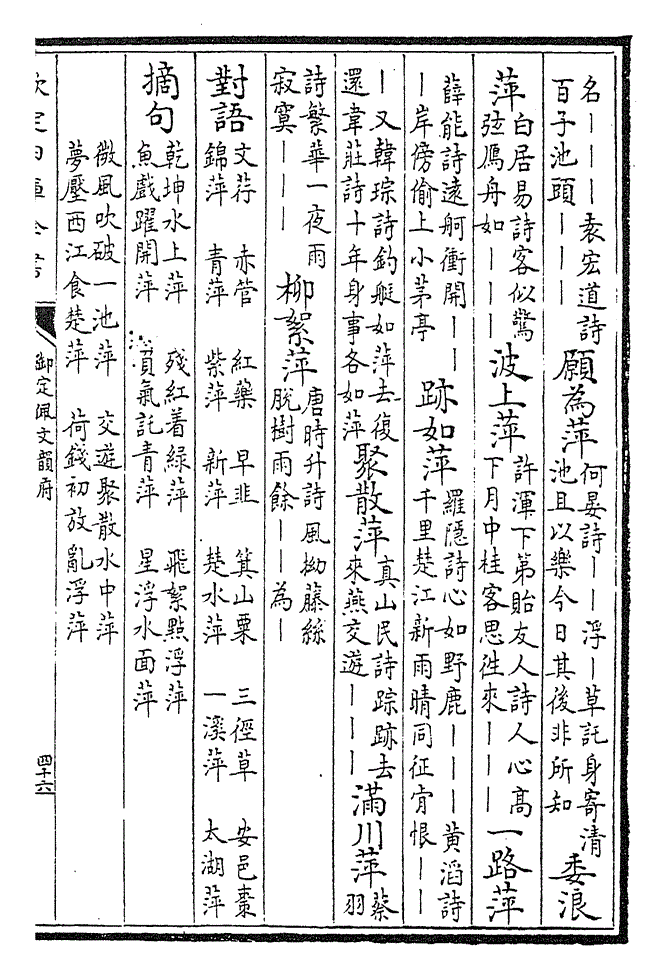 名｜｜｜袁宏道詩百子池頭｜｜｜願為萍何晏詩｜｜浮｜草託身寄清池且以樂今日其後非所知委浪
萍白居易詩客似驚弦鴈舟如｜｜｜波上萍許渾下第貽友人詩人心高下月中桂客思徃來｜｜｜一路萍
薛能詩遠舸衝開｜｜｜岸傍偷上小茅亭跡如萍羅隱詩心如野鹿｜｜｜黃滔詩千里楚江新雨晴同征肯恨｜｜
｜又韓琮詩釣艇如萍去復還韋莊詩十年身事各如萍聚散萍真山民詩踪跡去來燕交遊｜｜｜滿川萍蔡羽
詩繁華一夜雨寂寞｜｜｜柳絮萍唐時升詩風拗藤絲脫樹雨餘｜｜為｜
對語 文荇 赤管 紅藥 早韭 箕山粟 三徑草 安邑棗
錦萍 青萍 紫萍 新萍 楚水萍 一溪萍 太湖萍
摘句 乾坤水上萍 殘紅着綠萍 飛絮點浮萍
魚戲躍開萍 負氣託青萍 星浮水面萍
微風吹破一池萍 交遊聚散水中萍
夢壓西江食楚萍 荷錢初放亂浮萍
欽定四庫全書
御定佩文韻府
四十六